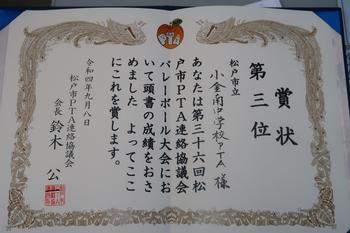 PTA
賞状
第三位
松戸市立
小金南中学校PTA 様
あなたは第三十六回松
戸市PTA連絡協議会
バレーボール大会にお
いて頭書の成績をおさ
めました よってここ
にこれを賞します。
令和四年九月八日
松戸市PTA連絡協議会
会長 鈴木 公